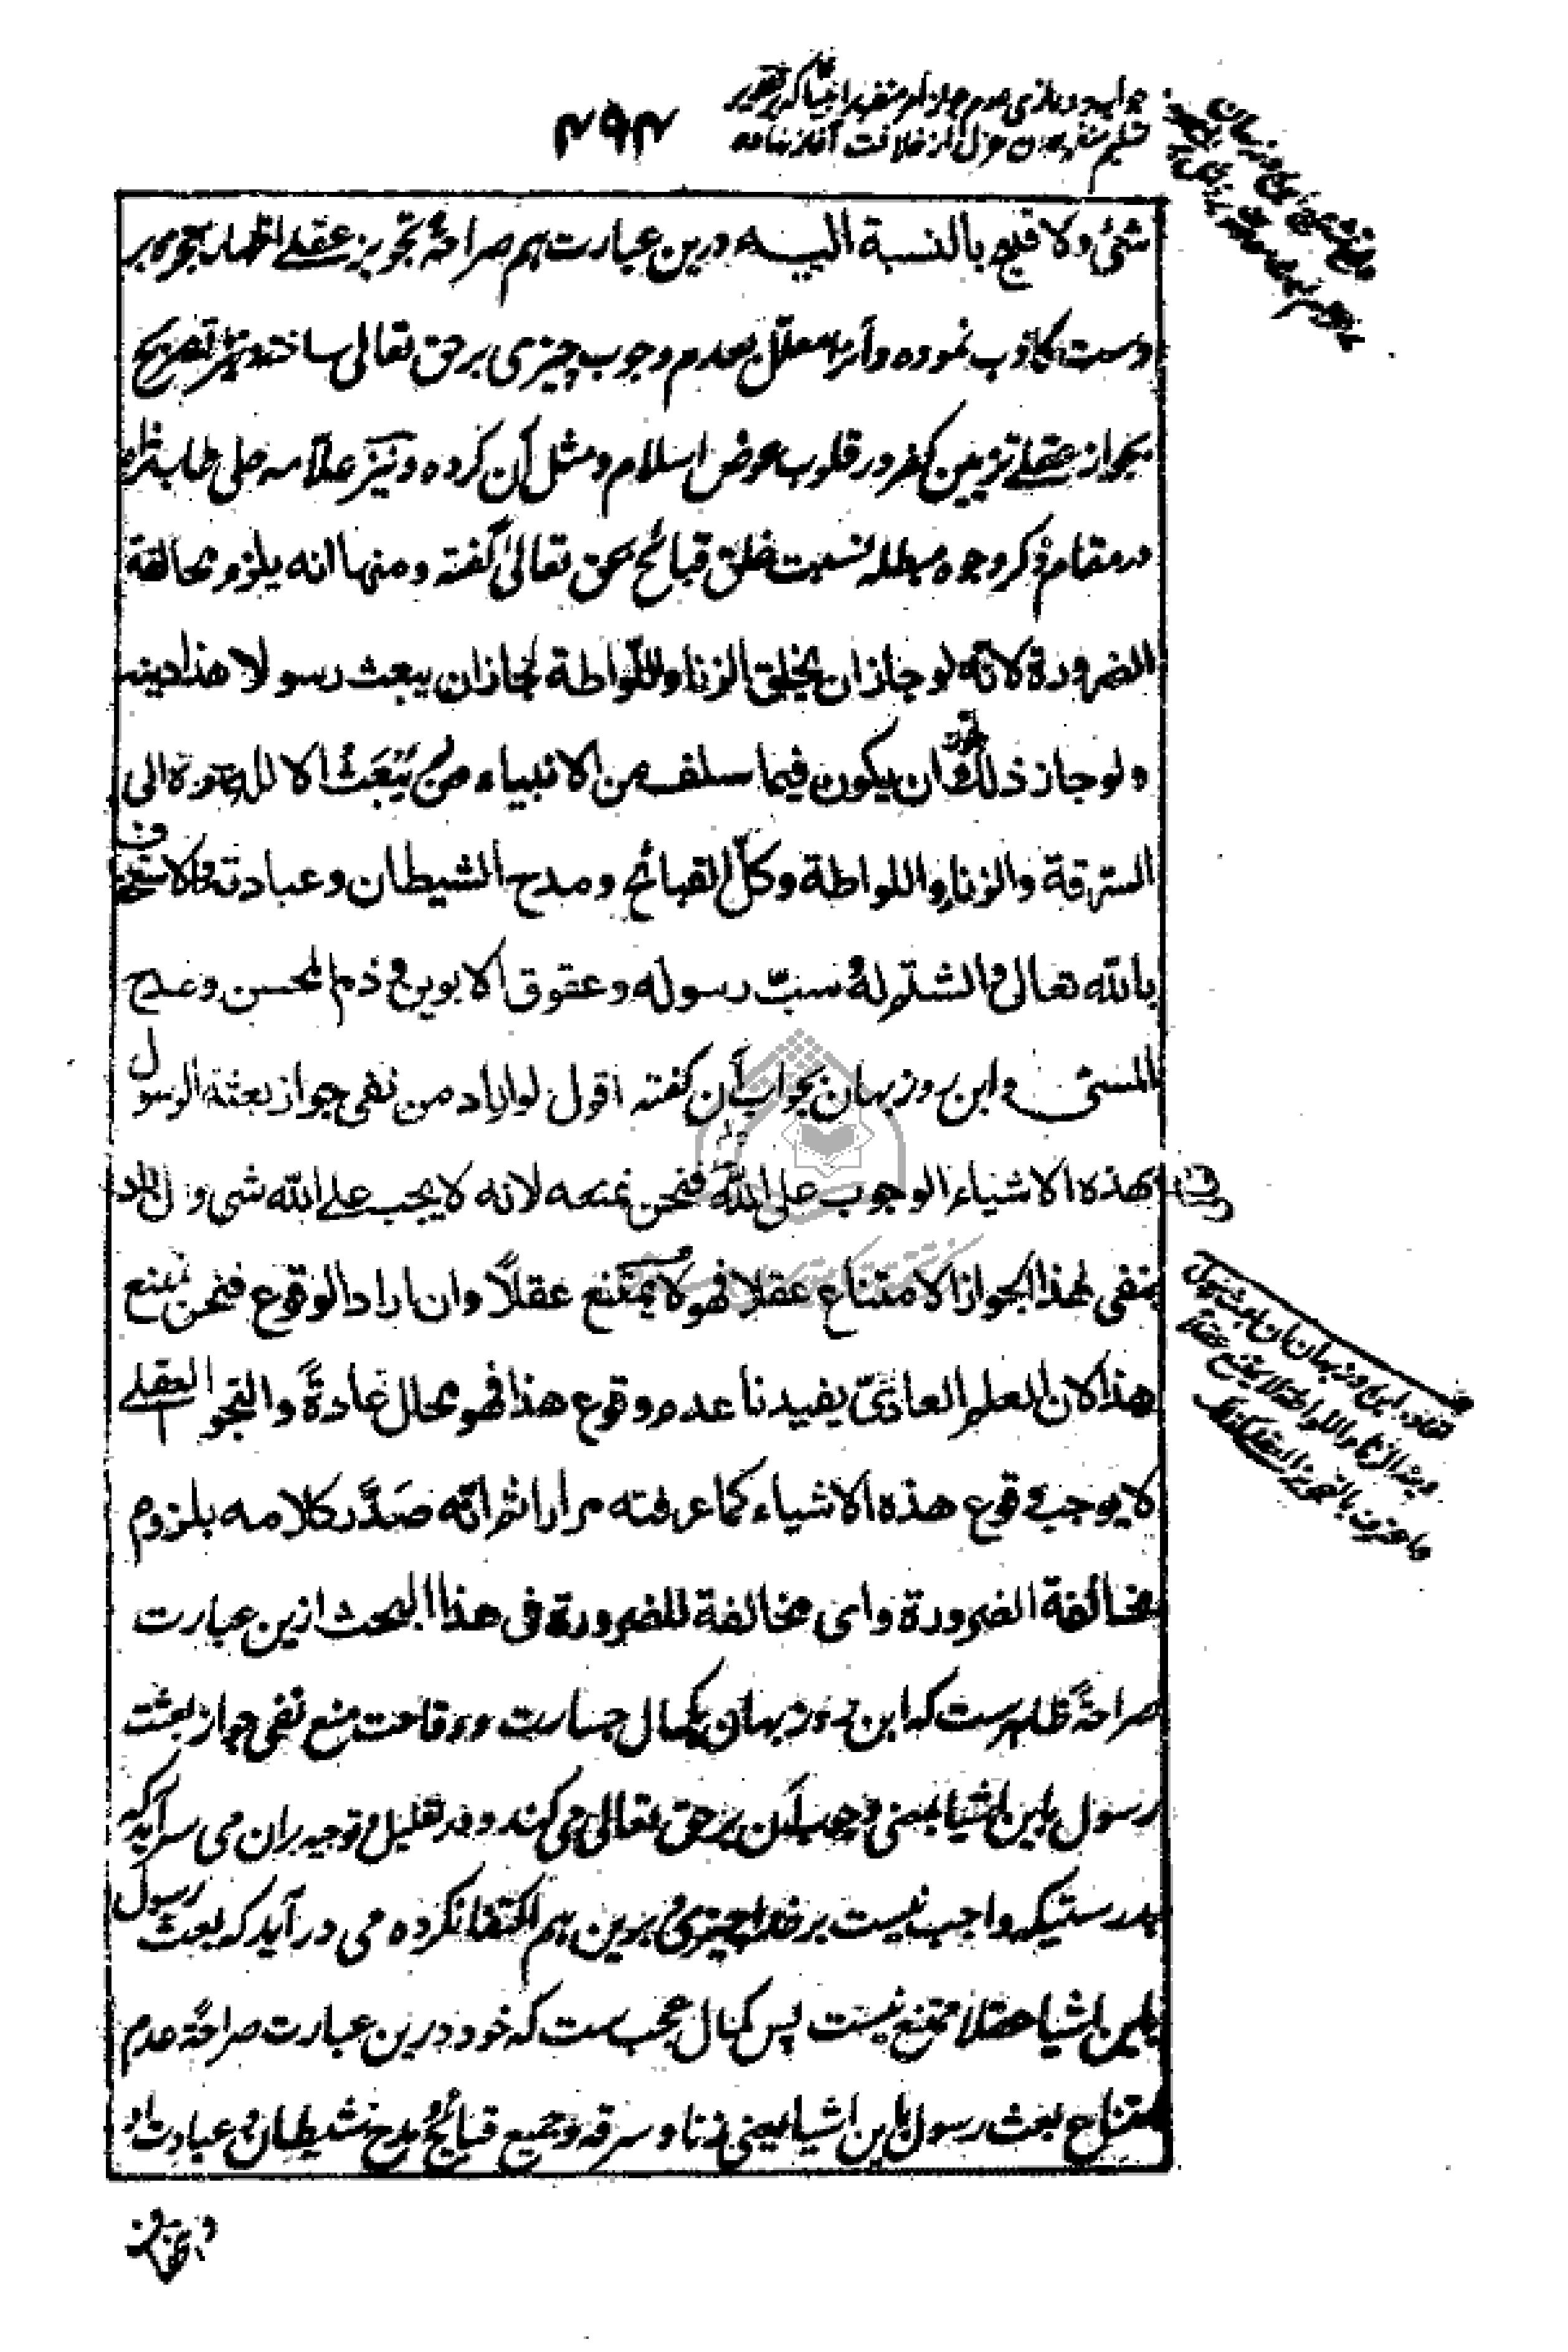 ۴۹۴
شئ ولا قبیح بالنسبة الیه درین عبارت هم صراحةً تجویز عقلے اظهار معجزه بر
دست کاذب نموده و آنرا معلّل بعدم وجوب چیزی بر حق تعالی ساخته و نیز تصریح
بجواز عقلے تزیین کفر در قلوب عوض اسلام و مثل آن کرده و نیز علّامه حلی طاب ثراه
در مقام ذکر وجوه مبطله نسبت خلق قبائح بحق تعالیٰ گفته ومنها انه یلزم مخالفة
الضرورة لانّه لو جاز ان یخلق الزنا واللّواطة لجاز ان یبعث رسولا هذا دینه
ولو جاز ذلك لجاز ان یکون فیما سلف من الانبیاء من لم یُبعَث الا للدعوة الی
السرقة والزناء واللواطة وکلّ القبائح ومدح الشیطان وعبادته والاستخفاف
بالله تعالی والشتم له وسبّ رسوله وعقوق الابوین وذم المحسن ومدح
المسئ وابن روزبهان بجواب آن گفته اقول لو اراد من نفی جواز بعثة الرسول
بهذه الاشیاء الوجوب علی الله فنحن نمنعه لانه لا یجب علے الله شی وان اراد
بنفی هذا الجواز الامتناع عقلا فهو لا یمتنع عقلًا وان اراد الوقوع فنحن نمنع
هذا لان العلم العادیّ یفیدنا عدم وقوع هذا فهو محال عادةً والتجویز العقلے
لا یوجب وقوع هذه الاشیاء کما عرفته مرارا ثم انّه صَدَّر کلامه بلزوم
مخالفة الضرورة وای مخالفة للضرورة فی هذا البحث ازین عبارت
صراحةً ظاهرست که ابن روزبهان بکمال جسارت و وقاحت منع نفی جواز بعثت
رسول باین اشیا بمعنی وجوب آن بر حق تعالی می کند و در تعلیل و توجیه بران می سراید که
بدرستیکه واجب نیست بر خدا چیزی و برین هم اکتفا نکرده می در آید که بعث رسول
باین اشیا عقلا ممتنع نیست پس کمال عجب ست که خود درین عبارت صراحةً عدم
امتناع بعث رسول باین اشیا یعنی زنا و سرقه و جمیع قبائح و مدح شیطان و عبادت او